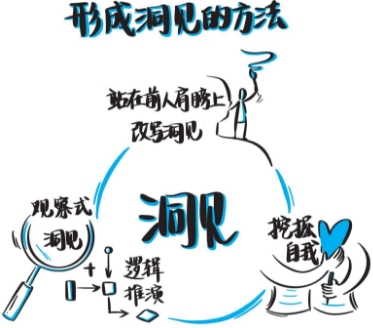 形成洞见的方法
站在前人肩膀上
改写洞见
观察式
洞见
洞见
+
逻辑
推演
挖掘
自我